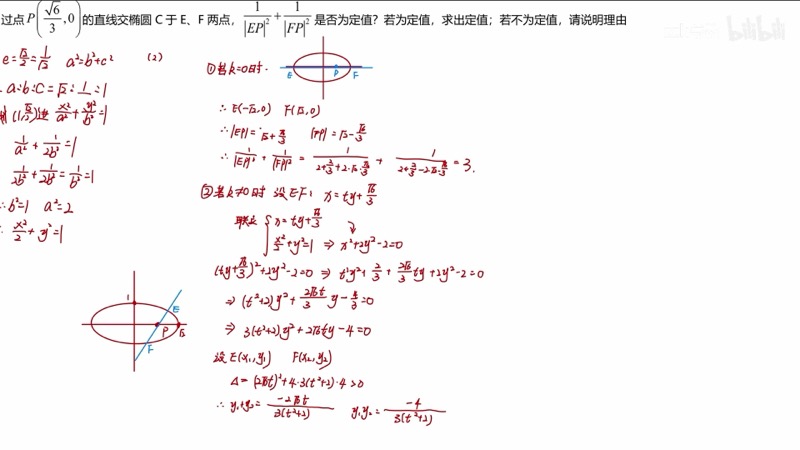 过点 P(√6/3, 0) 的直线交椭圆 C 于 E、F 两点，1/|EP|² + 1/|FP|² 是否为定值？若为定值，求出定值；若不为定值，请说明理由
e=√2/2=1/√2 a²=b²+c²
a:b:c=√2:1:1
x²/a²+y²/b²=1
1/a²+1/2b²=1
1/2b²+1/2b²=1/b²=1
∴b²=1 a²=2
x²/2+y²=1
1
E
P
√2
F
(2)
①若k=0时.
E
P
F
∴E(-√2,0) F(√2,0)
∴|EP|=√2+√6/3 |FP|=√2-√6/3
∴1/|EP|²+1/|FP|²=1/(2+2/3+2·√2·√6/3)+1/(2+2/3-2√2·√6/3)=3.
②若k≠0时 设EF: x=ty+√6/3
联立 {x=ty+√6/3
x²/2+y²=1 ⇒ x²+2y²-2=0
(ty+√6/3)²+2y²-2=0 ⇒ t²y²+2/3+2√6/3ty+2y²-2=0
⇒(t²+2)y²+2√6t/3y-4/3=0
⇒3(t²+2)y²+2√6ty-4=0
设E(x₁,y₁) F(x₂,y₂)
Δ=(2√6t)²+4·3(t²+2)·4>0
∴y₁+y₂=-2√6t/3(t²+2) y₁y₂=-4/3(t²+2)
bilibili